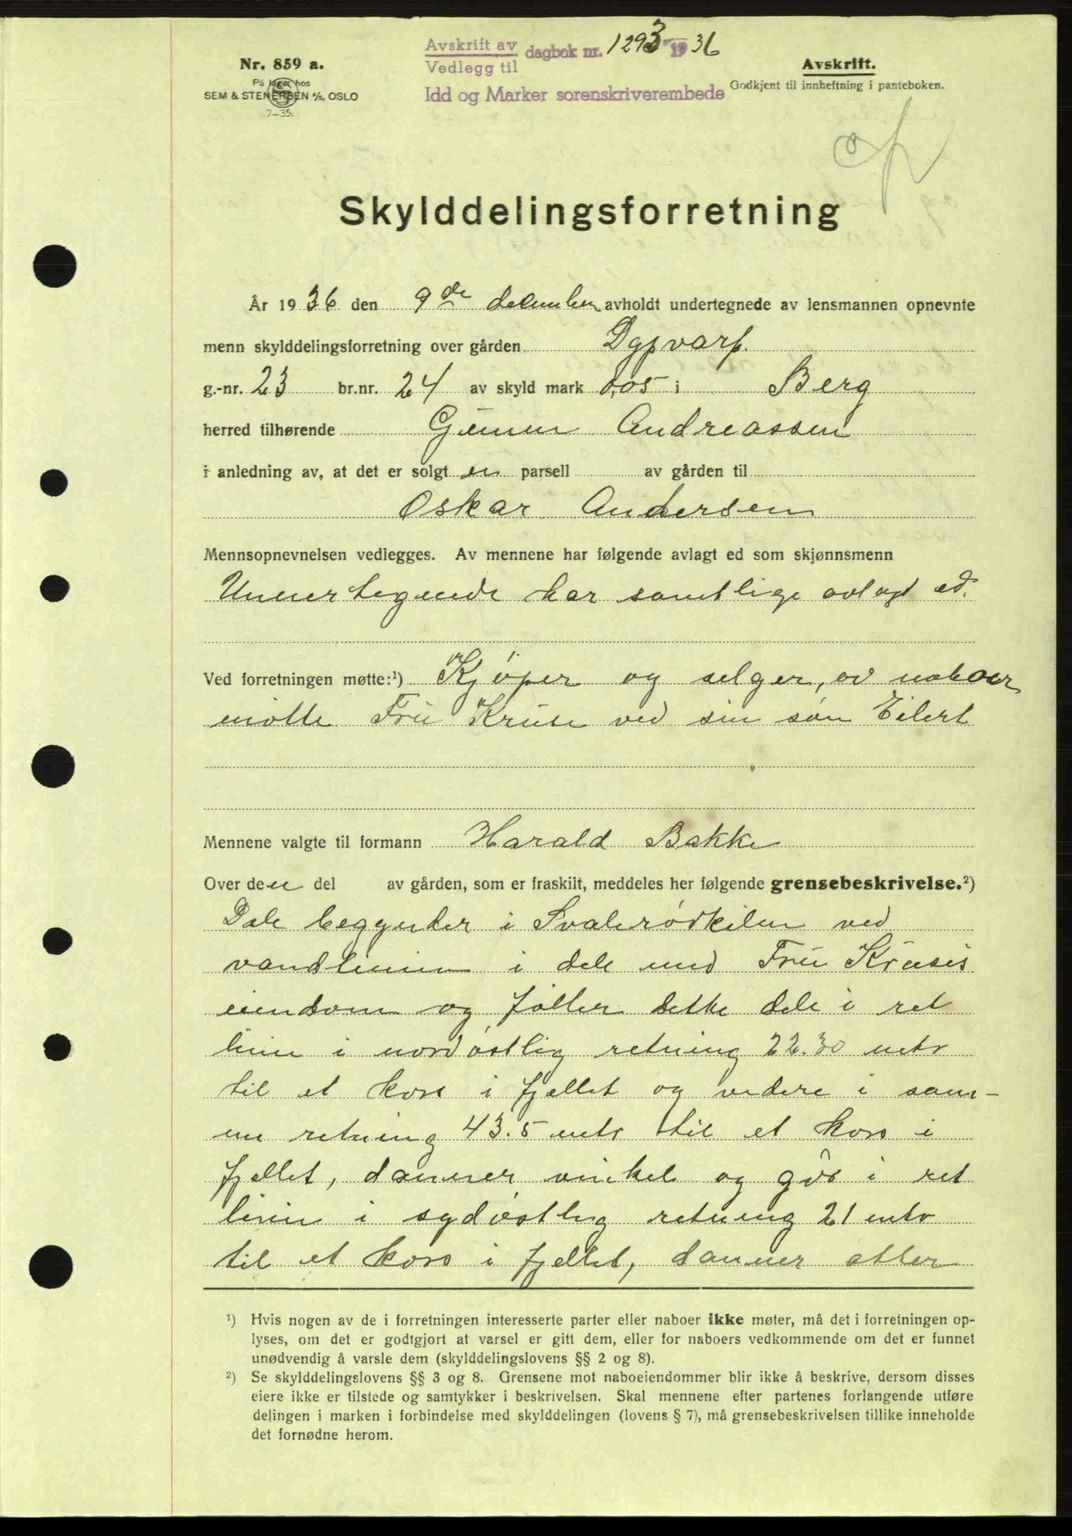 Nr. 859 a.
På lager hos
SEM & STENERSEN A/S, OSLO
7-35.
Avskrift av
Vedlegg til
dagbok nr. 1293 1936
Idd og Marker sorenskriverembede
Avskrift.
Godkjent til innheftning i panteboken.
Skylddelingsforretning
År 1936 den 9de december avholdt undertegnede av lensmannen opnevnte
menn skylddelingsforretning over gården
g.-nr. 23 br.nr. 24 av skyld mark 0,05 i Berg
herred tilhørende Gunner Andreassen
i anledning av, at det er solgt en parsell av gården til
Oskar Andersen
Mennsopnevnelsen vedlegges. Av mennene har følgende avlagt ed som skjønnsmenn
Unnertegnede har samtlige avlagt ed.
Ved forretningen møtte:¹) Kjøper og selger, av naboer
møtte Fru Kruse ved sin søn Eilert
Mennene valgte til formann Harald Bakke
Over den del av gården, som er fraskilt, meddeles her følgende grensebeskrivelse.²)
Dele begynder i Svalerødkilen ved
vandlinien i dele med Fru Kruses
eiendom og føller dette dele i ret
linie i nordøstlig retning 22.30 mtr
til et kors i fjellet og videre i sam-
me retning 43.5 mtr til et kors i
fjellet, danner vinkel og går i ret
linie i sydøstlig retning 21 mtr
til et kors i fjellet, danner atter
¹) Hvis nogen av de i forretningen interesserte parter eller naboer ikke møter, må det i forretningen op-
lyses, om det er godtgjort at varsel er gitt dem, eller for naboers vedkommende om det er funnet
unødvendig å varsle dem (skylddelingslovens §§ 2 og 8).
²) Se skylddelingslovens §§ 3 og 8. Grensene mot naboeiendommer blir ikke å beskrive, dersom disses
eiere ikke er tilstede og samtykker i beskrivelsen. Skal mennene efter partenes forlangende utføre
delingen i marken i forbindelse med skylddelingen (lovens § 7), må grensebeskrivelsen tillike inneholde
det fornødne herom.